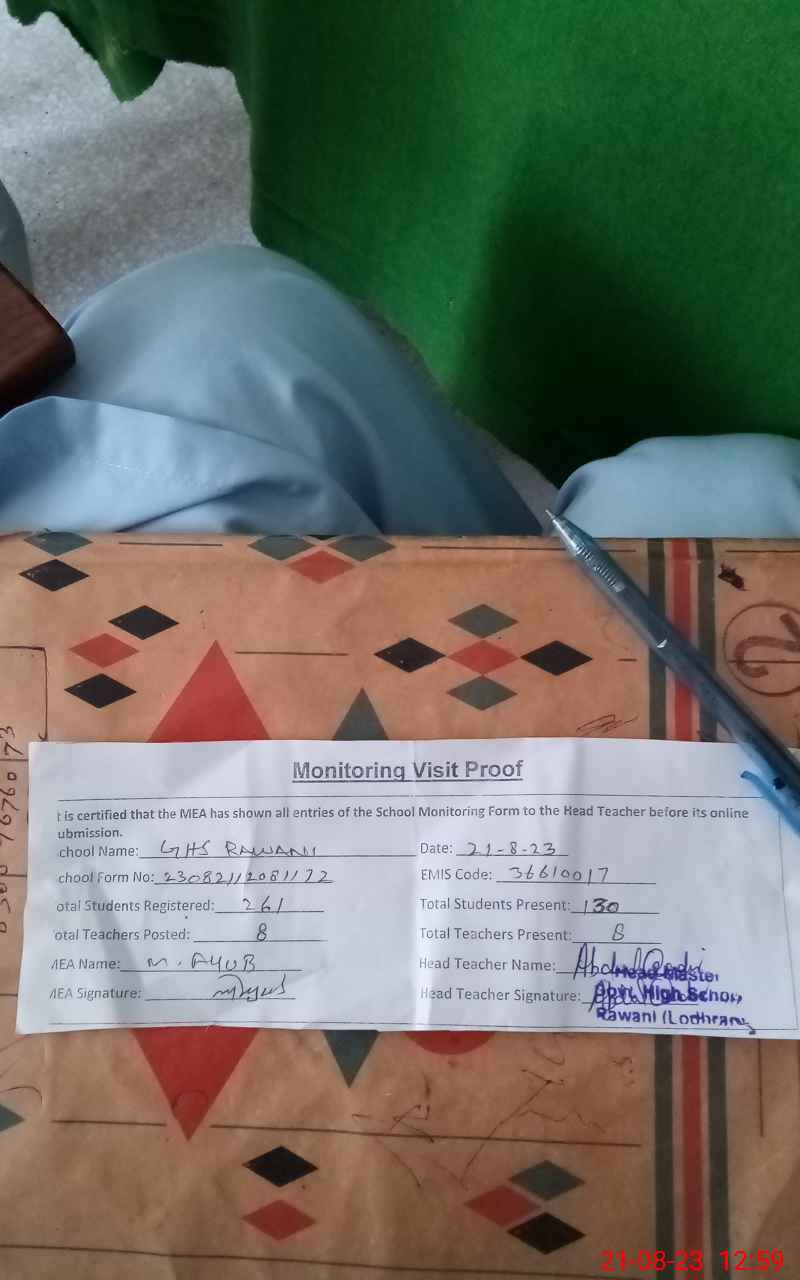 Monitoring Visit Proof
t is certified that the MEA has shown all entries of the School Monitoring Form to the Head Teacher before its online
ubmission.
chool Name: GHS RAWANI Date: 21-8-23
chool Form No: 23082112081172 EMIS Code: 36610017
otal Students Registered: 261 Total Students Present: 130
otal Teachers Posted: 8 Total Teachers Present: 8
MEA Name: M. AYUB Head Teacher Name: Abdul
MEA Signature: Head Teacher Signature:
Head Master
Govt. High School
Rawani (Lodhran)
21-08-23 12:59